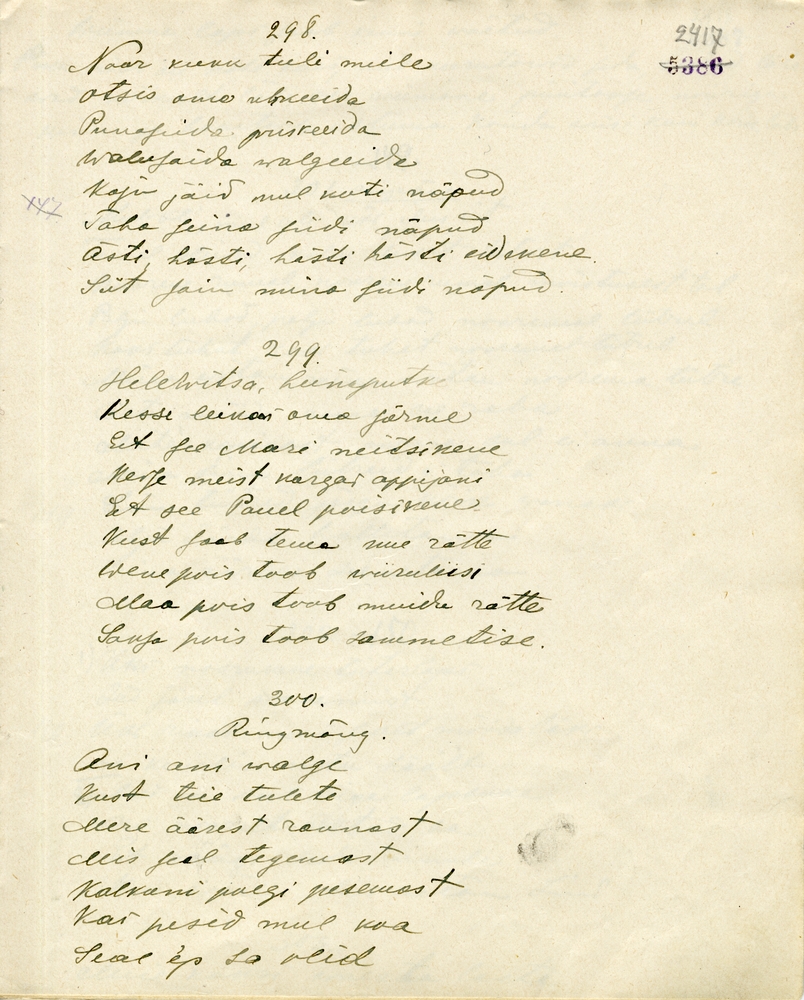 298.
2417
5386
Noor kukk tuli meile
otsis oma uhkeeida
Punaseida priskeeida
Walusaida walgeeida
Koju jäid mul koti näpud
Taha seina siidi näpud
Ästi, hästi, hästi hästi eidekene.
Siit sain mina siidi näpud.
299.
Helkwitsa, heinaputke
Kesse leikas oma sörme
Eet see Mari neitsikene
Kesse meist kargas appijani
Eet see Pauel poisikene.
Kust saab tema uue rätte
Wene pois toob
Maa pois toob muidu rätte
Saksa pois toob sammetise.
300.
Ringmäng.
Ani ani walge
Kust teie tulete
Mere äärest rannast
Mis seal tegemast
Kalkani poegi pesemast
Kas pesid mul koa
Seal ep sa olid